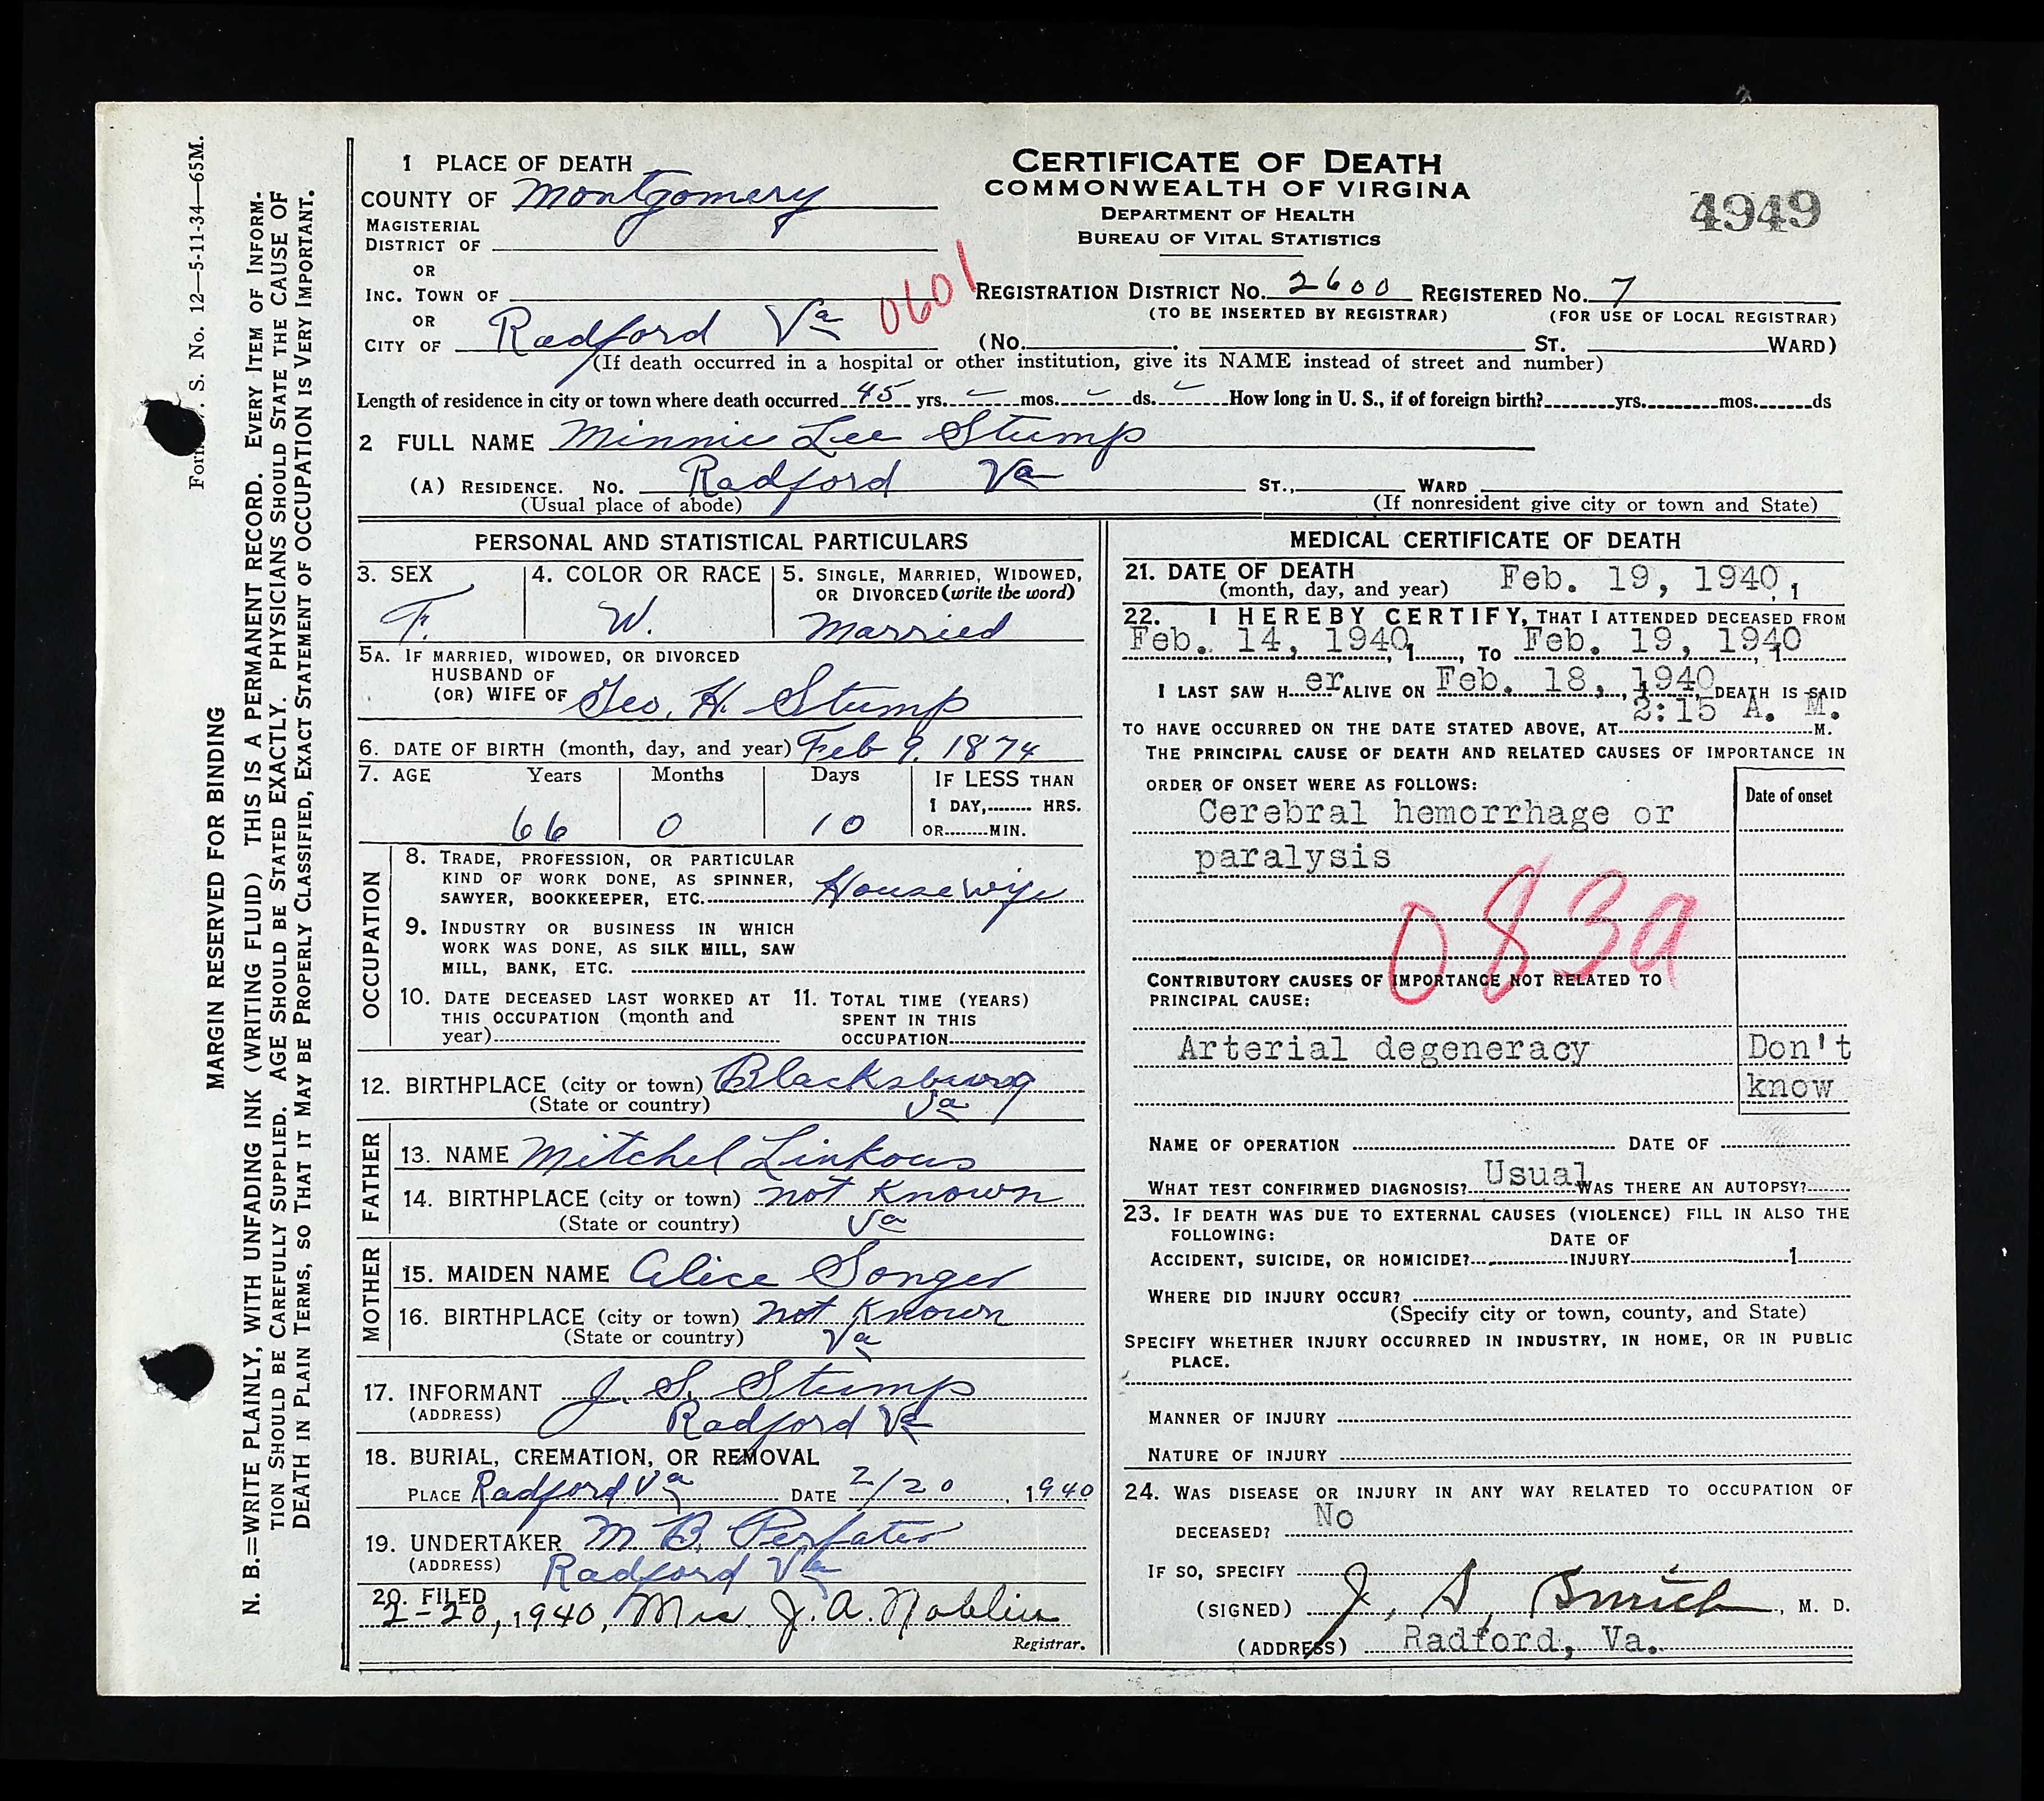 Form V. S. No. 12—5-11-34—65M.
MARGIN RESERVED FOR BINDING
N. B.=WRITE PLAINLY, WITH UNFADING INK (WRITING FLUID) THIS IS A PERMANENT RECORD. EVERY ITEM OF INFORM-
TION SHOULD BE CAREFULLY SUPPLIED. AGE SHOULD BE STATED EXACTLY. PHYSICIANS SHOULD STATE THE CAUSE OF
DEATH IN PLAIN TERMS, SO THAT IT MAY BE PROPERLY CLASSIFIED, EXACT STATEMENT OF OCCUPATION IS VERY IMPORTANT.
CERTIFICATE OF DEATH
COMMONWEALTH OF VIRGINA
DEPARTMENT OF HEALTH
BUREAU OF VITAL STATISTICS
4949
1 PLACE OF DEATH
COUNTY OF Montgomery
MAGISTERIAL
DISTRICT OF
OR
INC. TOWN OF
0601
REGISTRATION DISTRICT NO. 2600 REGISTERED NO. 7
(TO BE INSERTED BY REGISTRAR) (FOR USE OF LOCAL REGISTRAR)
OR
CITY OF Radford Va (No. ST. WARD)
(If death occurred in a hospital or other institution, give its NAME instead of street and number)
Length of residence in city or town where death occurred 45 yrs. mos. ds. How long in U. S., if of foreign birth? yrs. mos. ds
2 FULL NAME Minnie Lee Stump
(A) RESIDENCE. NO. Radford Va ST., WARD
(Usual place of abode) (If nonresident give city or town and State)
PERSONAL AND STATISTICAL PARTICULARS
3. SEX
F.
4. COLOR OR RACE
W.
5. SINGLE, MARRIED, WIDOWED,
OR DIVORCED (write the word)
Married
5A. IF MARRIED, WIDOWED, OR DIVORCED
HUSBAND OF
(OR) WIFE OF Geo. H. Stump
6. DATE OF BIRTH (month, day, and year) Feb 9, 1874
7. AGE Years Months Days IF LESS THAN
1 DAY, HRS.
66 0 10 OR MIN.
OCCUPATION
8. TRADE, PROFESSION, OR PARTICULAR
KIND OF WORK DONE, AS SPINNER,
SAWYER, BOOKKEEPER, ETC. Housewife
9. INDUSTRY OR BUSINESS IN WHICH
WORK WAS DONE, AS SILK MILL, SAW
MILL, BANK, ETC.
10. DATE DECEASED LAST WORKED AT
THIS OCCUPATION (month and
year)
11. TOTAL TIME (YEARS)
SPENT IN THIS
OCCUPATION
12. BIRTHPLACE (city or town) Blacksburg
(State or country) Va
FATHER
13. NAME Mitchel Linkous
14. BIRTHPLACE (city or town) not Known
(State or country) Va
MOTHER
15. MAIDEN NAME Alice Songer
16. BIRTHPLACE (city or town) not Known
(State or country) Va
17. INFORMANT J. S. Stump
(ADDRESS) Radford Va
18. BURIAL, CREMATION, OR REMOVAL
PLACE Radford Va DATE 2/20, 1940
19. UNDERTAKER M. B. Perfater
(ADDRESS) Radford Va
20. FILED
2-20, 1940, Mrs. J. A. Noblin
Registrar.
MEDICAL CERTIFICATE OF DEATH
21. DATE OF DEATH
(month, day, and year) Feb. 19, 1940, 1
22. I HEREBY CERTIFY, THAT I ATTENDED DECEASED FROM
Feb. 14, 1940, 1, TO Feb. 19, 1940, 1
I LAST SAW H er ALIVE ON Feb. 18, 1940, DEATH IS SAID
TO HAVE OCCURRED ON THE DATE STATED ABOVE, AT 2:15 A. M. M.
THE PRINCIPAL CAUSE OF DEATH AND RELATED CAUSES OF IMPORTANCE IN
ORDER OF ONSET WERE AS FOLLOWS:
Date of onset
Cerebral hemorrhage or
paralysis
083a
CONTRIBUTORY CAUSES OF IMPORTANCE NOT RELATED TO
PRINCIPAL CAUSE:
Arterial degeneracy Don't
know
NAME OF OPERATION DATE OF
WHAT TEST CONFIRMED DIAGNOSIS? Usual WAS THERE AN AUTOPSY?
23. IF DEATH WAS DUE TO EXTERNAL CAUSES (VIOLENCE) FILL IN ALSO THE
FOLLOWING: DATE OF
ACCIDENT, SUICIDE, OR HOMICIDE? INJURY 1
WHERE DID INJURY OCCUR?
(Specify city or town, county, and State)
SPECIFY WHETHER INJURY OCCURRED IN INDUSTRY, IN HOME, OR IN PUBLIC
PLACE.
MANNER OF INJURY
NATURE OF INJURY
24. WAS DISEASE OR INJURY IN ANY WAY RELATED TO OCCUPATION OF
DECEASED? No
IF SO, SPECIFY
(SIGNED) J. S. , M. D.
(ADDRESS) Radford, Va.